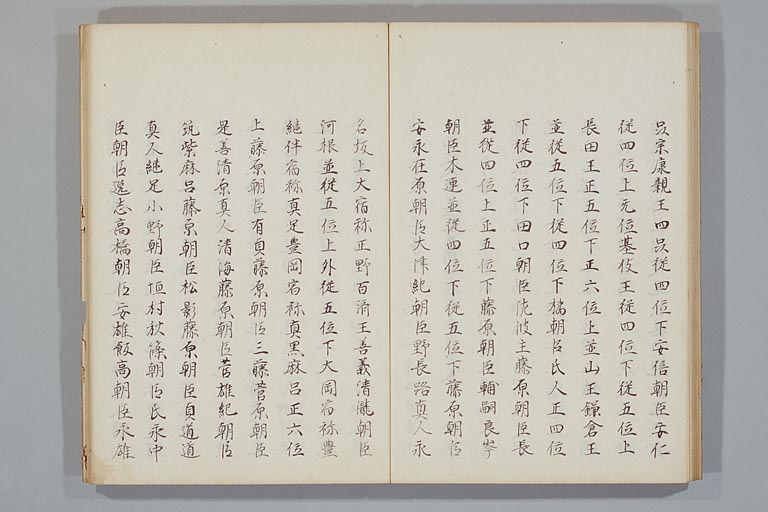 品宗康親王四品從四位下安倍朝臣安仁
從四位上无位基俊王從四位下從五位上
長田王正五位下正六位上並山王鎌倉王
並從五位下從四位下橘朝臣氏人正四位
下從四位下田口朝臣佐波主藤原朝臣長
並從四位上正五位下藤原朝臣輔嗣良岑
朝臣木連並從四位下從五位下藤原朝臣
安永在原朝臣大津紀朝臣野長路真人永
名坂上大宿祢正野百済王善義清瀧朝臣
河根並從五位上外從五位下大岡宿祢豊
継伴宿祢真足豊岡宿祢真黒麻呂正六位
上藤原朝臣有貞藤原朝臣三藤菅原朝臣
是善清原真人清海藤原朝臣菅雄紀朝臣
筑紫麻呂藤原朝臣松影藤原朝臣貞道道
真人継足小野朝臣恒村秋篠朝臣氏永中
臣朝臣逸志高橋朝臣安雄飯高朝臣永雄